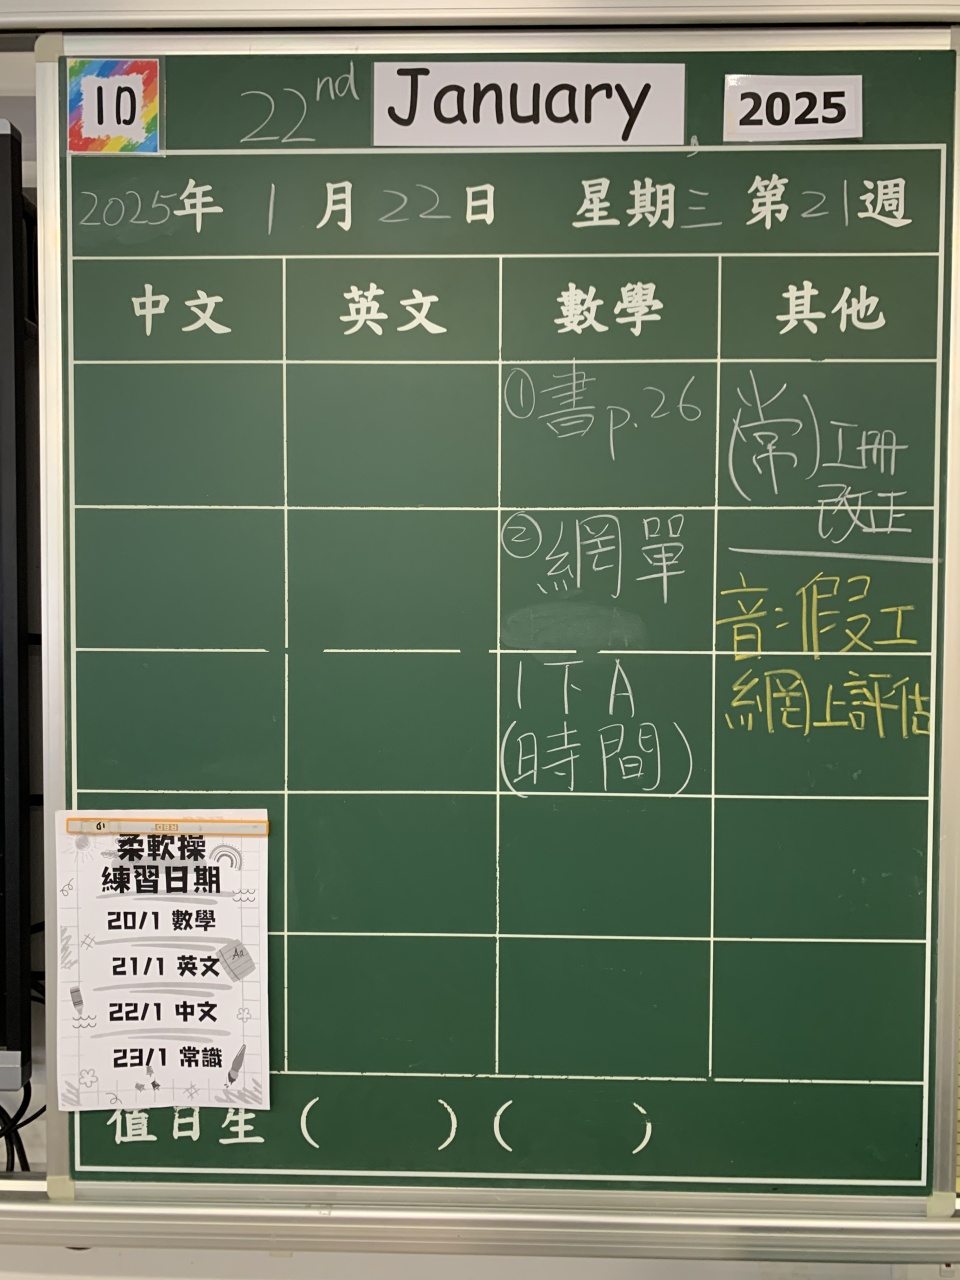 1D
22nd January, 2025
2025年 1月22日 星期三 第21週
中文 英文 數學 其他
①書p.26
(常)工冊
改正
②網單
1下A
(時間)
音:假工
網上評估
柔軟操
練習日期
20/1 數學
21/1 英文
22/1 中文
23/1 常識
Aa
值日生 ( ) ( )